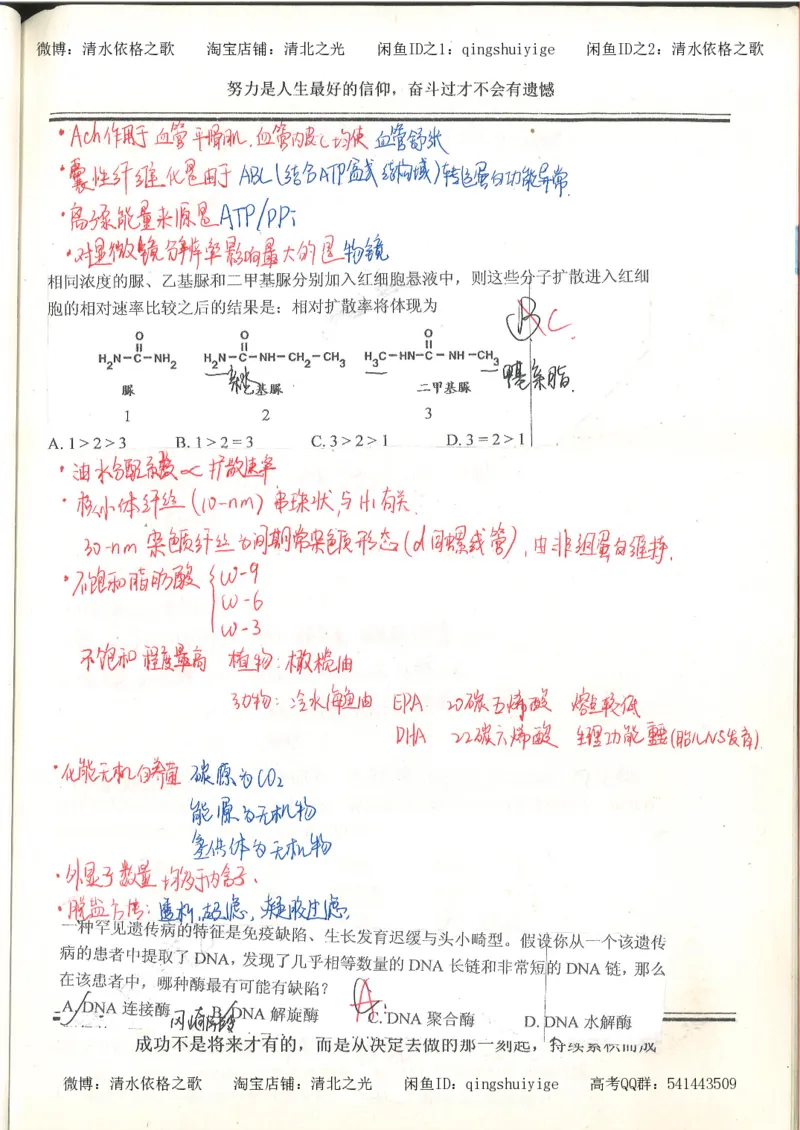 微博：清水依格之歌 淘宝店铺：清北之光 闲鱼ID之1：qingshuiyige 闲鱼ID之2：清水依格之歌
努力是人生最好的信仰，奋斗过才不会有遗憾
·Ach作用于血管平滑肌、血管内皮C均使血管舒张
·囊性纤维化是由于ABC(结合ATP盒式结构域)转运蛋白功能异常.
·离子泵能量来源是ATP/PPi
·对显微镜分辨率影响最大的是物镜
相同浓度的脲、乙基脲和二甲基脲分别加入红细胞悬液中，则这些分子扩散进入红细
胞的相对速率比较之后的结果是：相对扩散率将体现为
B C.
O O O
H2N-C-NH2 H2N-C-NH-CH2-CH3 H3C-HN-C-NH-CH3
脲 乙基脲 二甲基脲
亲脂.
1 2 3
A. 1＞2＞3 B. 1＞2＝3 C. 3＞2＞1 D. 3＝2＞1
·油水分配系数∝扩散速率
·核小体纤丝(10-nm)串珠状,与H1有关.
30-nm染色质纤丝为间期常染色质形态(d因螺线管),由非组蛋白维持.
·不饱和脂肪酸 { ω-9
ω-6
ω-3
不饱和程度最高 植物：橄榄油
动物：冷水海鱼油 EPA 20碳五烯酸 熔点较低
DHA 22碳六烯酸 生理功能重要(胎儿NS发育).
·化能无机自养菌 碳源为CO2
能源为无机物
氢供体为无机物
·外显子数量均多于内含子.
·脱盐方法：透析,超滤,凝胶过滤.
一种罕见遗传病的特征是免疫缺陷、生长发育迟缓与头小畸型。假设你从一个该遗传
病的患者中提取了 DNA，发现了几乎相等数量的 DNA 长链和非常短的 DNA 链，那么
在该患者中，哪种酶最有可能有缺陷？ A
A. DNA 连接酶 B. DNA 解旋酶 C. DNA 聚合酶 D. DNA 水解酶
成功不是将来才有的，而是从决定去做的那一刻起，持续累积而成
微博：清水依格之歌 淘宝店铺：清北之光 闲鱼ID：qingshuiyige 高考QQ群：541443509